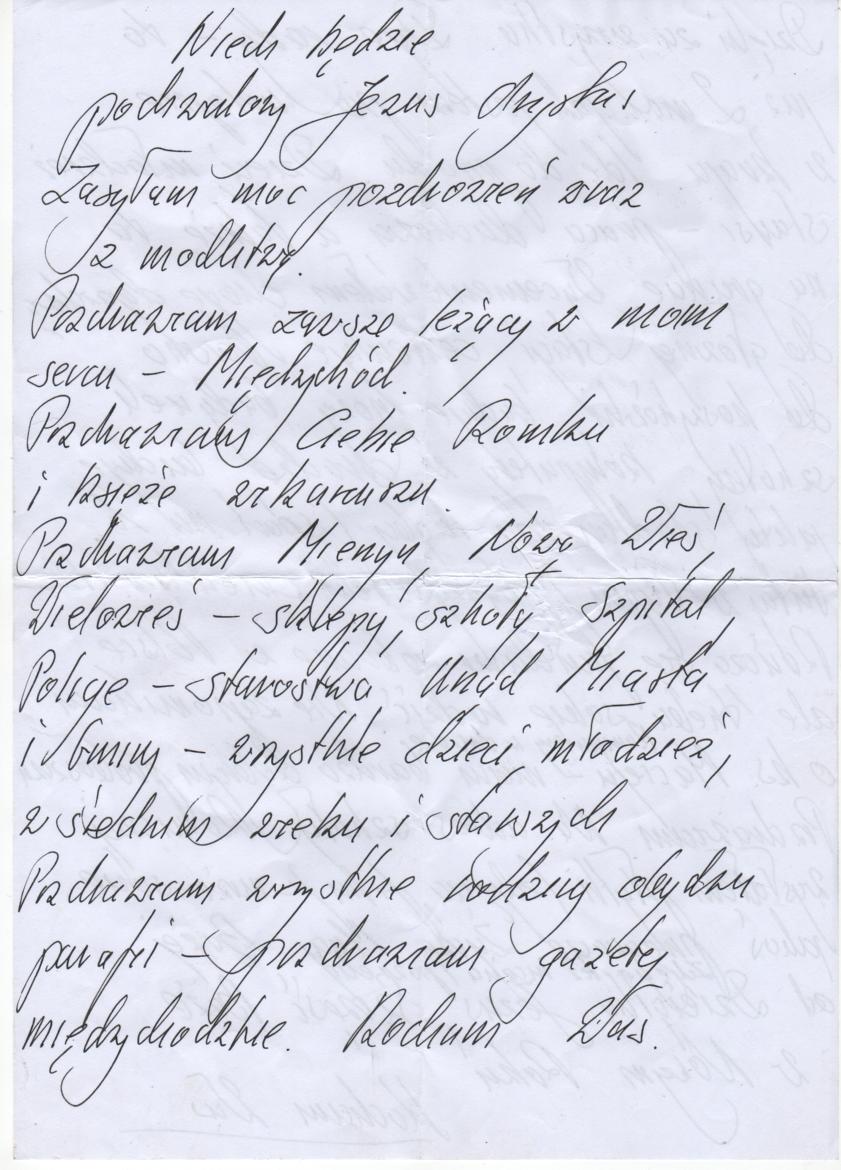 Niech będzie
pochwalony Jezus Chrystus
Zasyłam moc pozdrowień wraz
z modlitwą.
Pozdrawiam zawsze leżący w moim
sercu – Międzychód.
Pozdrawiam Ciebie Romku
i księże wikariuszu.
Pozdrawiam Mierzyn, Nową Wieś,
Wielowieś – sklepy, szkoły, Szpital,
Policje – starostwa Urząd Miasta
i Gminy – wszystkie dzieci, młodzież,
w średnim wieku i starszych
Pozdrawiam wszystkie rodziny obydwu
parafii – pozdrawiam gazetę
międzychodzkie. Kocham Was.